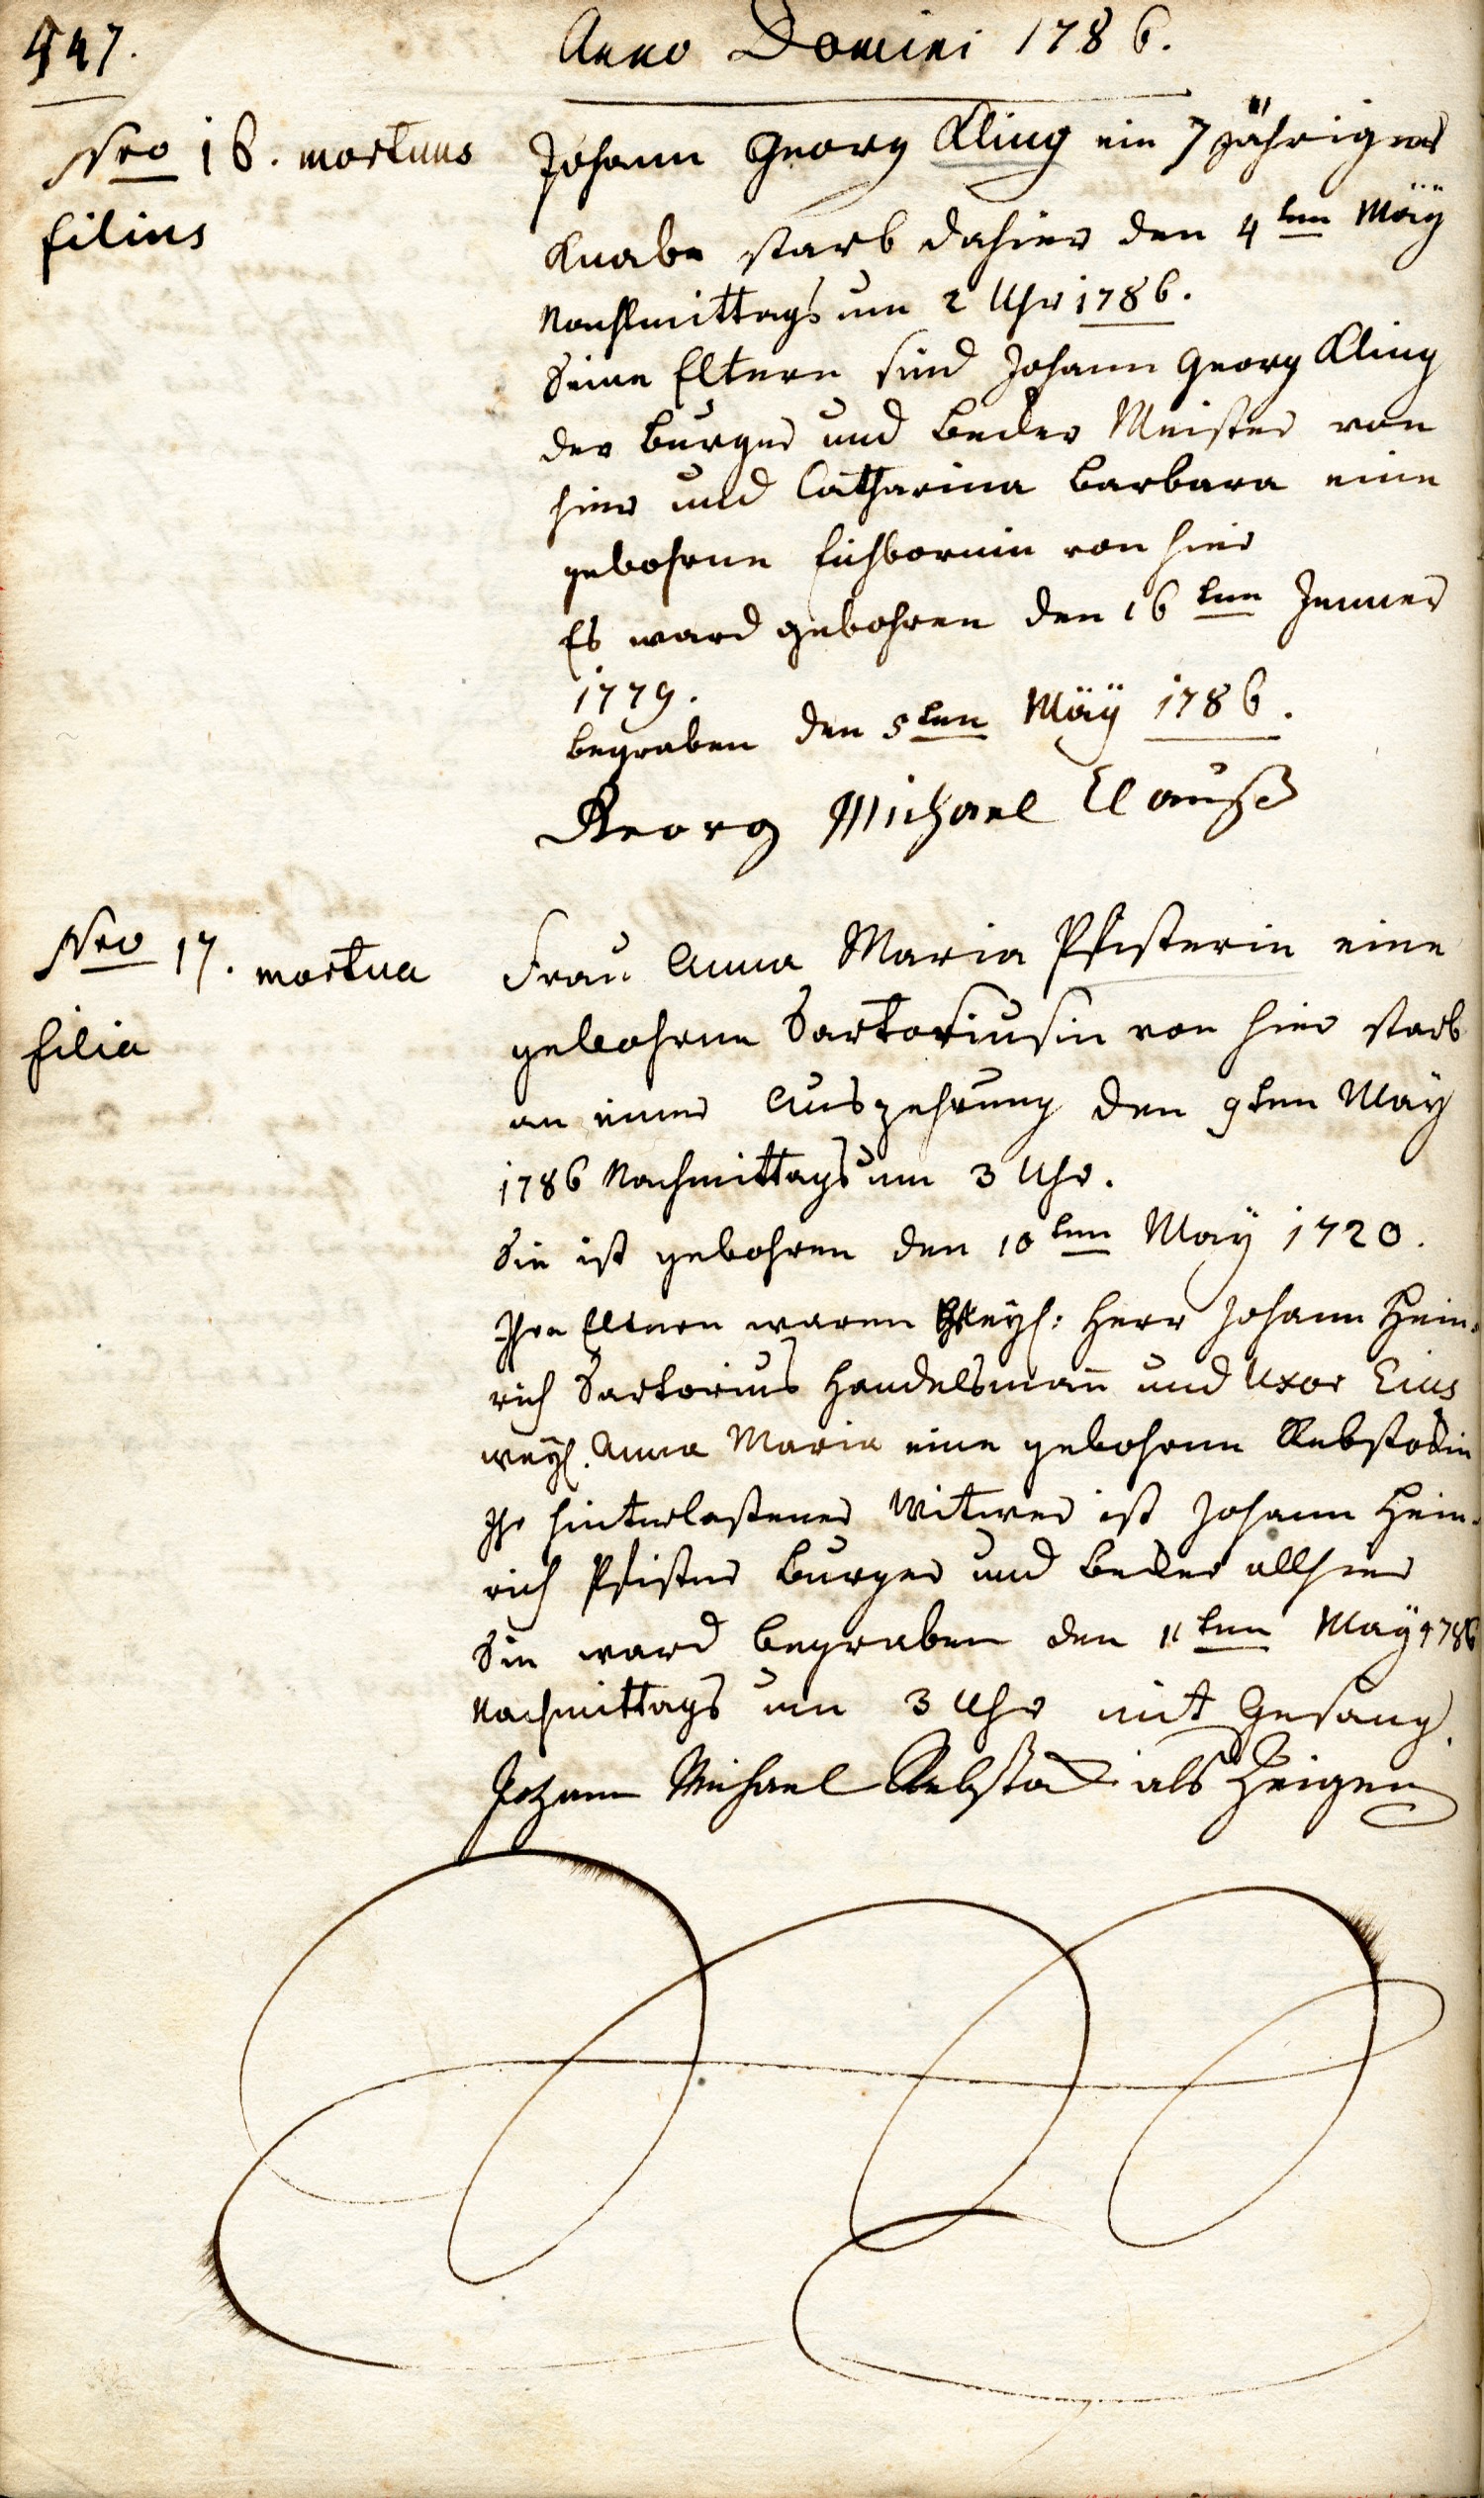 447.
Anno Domini 1786.
Nro 16. mortuus
filius
Johann Georg Kling ein 7 jähriger
Knabe starb dahier den 4ten Mäÿ
Nachmittags um 2 Uhr 1786.
Seine Eltern sind Johann Georg Kling
der Burger und Becker Meister von
hier und Catharina Barbara eine
gebohrne Eichbornin von hier
Es ward gebohren den 16ten Jenner
1779.
begraben den 5ten Mäÿ 1786.
Georg Michael Clauß
Nro 17. mortua
filia
Frau Anna Maria Pfisterin eine
gebohrne Sartoriusin von hier starb
an einer Auszehrung den 9ten Maÿ
1786 Nachmittags um 3 Uhr.
Sie ist gebohren den 10ten Maÿ 1720.
Ihre Eltern waren weyl: Herr Johann Hein-
rich Sartorius Handelsmañ und Uxor Eius
weyl. Anna Maria eine gebohrne Rebstockin
Ihr hinterlassener Witwer ist Johann Hein-
rich Pfister Burger und Becker allhier
Sie ward begraben den 11ten Maÿ 1786
Nachmittags um 3 Uhr mit Gesang.
Johann Michael Rebstock als Zeigen